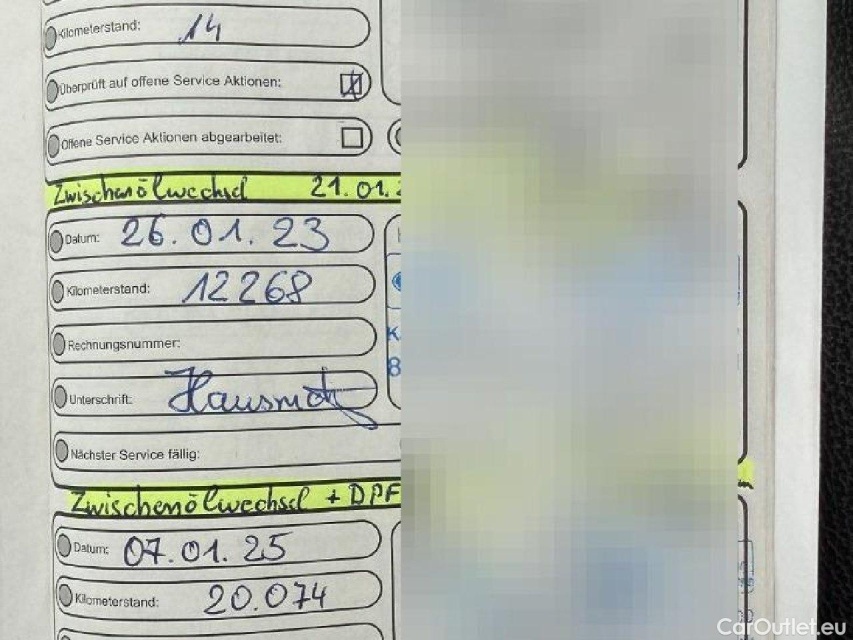 Kilometerstand: 14
Überprüft auf offene Service Aktionen:
Offene Service Aktionen abgearbeitet:
Zwischenölwechsel 21.01.
Datum: 26.01.23
Kilometerstand: 12268
K
Rechnungsnummer:
8
Unterschrift:
Nächster Service fällig:
Zwischenölwechsel + DPF
Datum: 07.01.25
Kilometerstand: 20.074
CarOutlet.eu